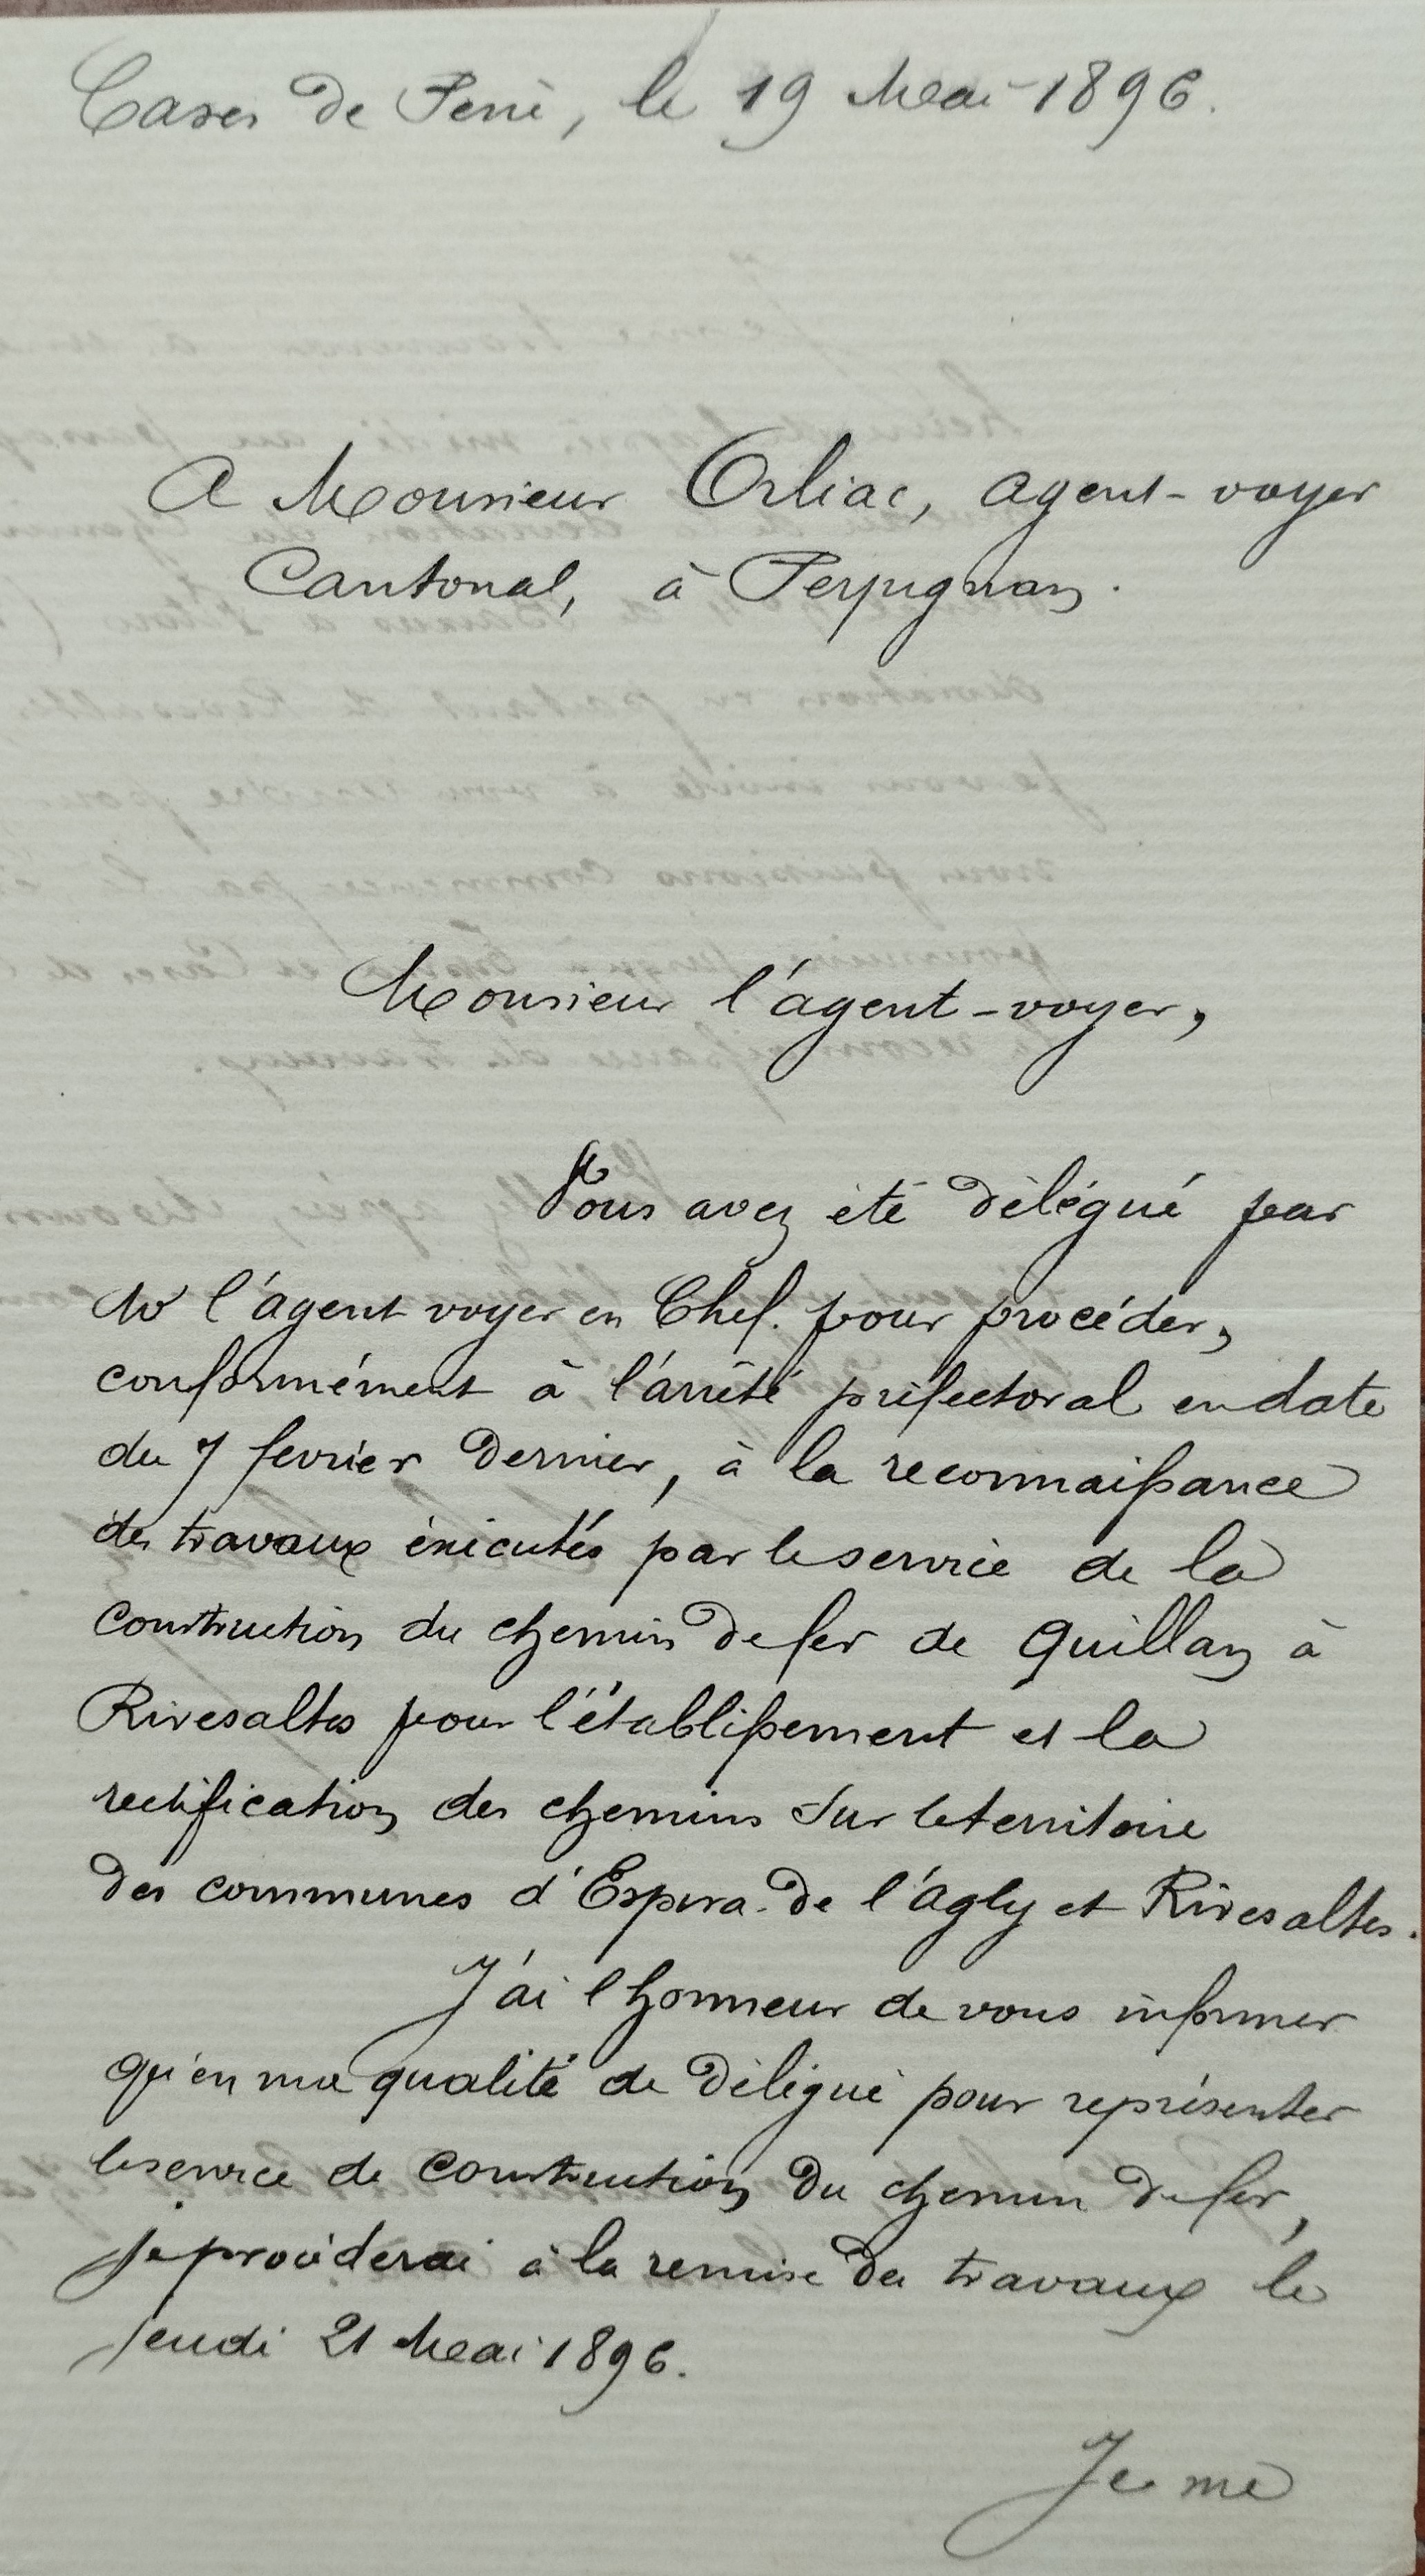 Cases de Pene, le 19 Mai 1896.
A Monsieur Orliac, agent-voyer
Cantonal, à Perpignan.
Monsieur l'agent-voyer,
Vous avez été délégué par
Mr l'agent voyer en Chef. pour procéder,
conformément à l'arrêté préfectoral en date
du 7 fevrier dernier, à la reconnaissance
des travaux éxécutés par le service de la
construction du chemin de fer de Quillan à
Rivesaltes pour l'établissement et la
rectification des chemins sur le territoire
des communes d'Espira-de l'agly et Rivesaltes.
J'ai l'honneur de vous informer
qu'en ma qualité de délégué pour représenter
le service de construction du chemin de fer,
je procéderai à la remise des travaux le
jeudi 21 Mai 1896.
Je me